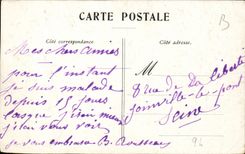 CARTE POSTALE
Côté correspondance.
Côté adresse.
B
Mes chers amies
pour l'instant
je suis malade
depuis 15 jours
lorsque j'irai mieux
j'irai vous voir
je vous embrasse B. Rousseau
M
8 rue de la liberté
Joinville-le-pont
Seine
94